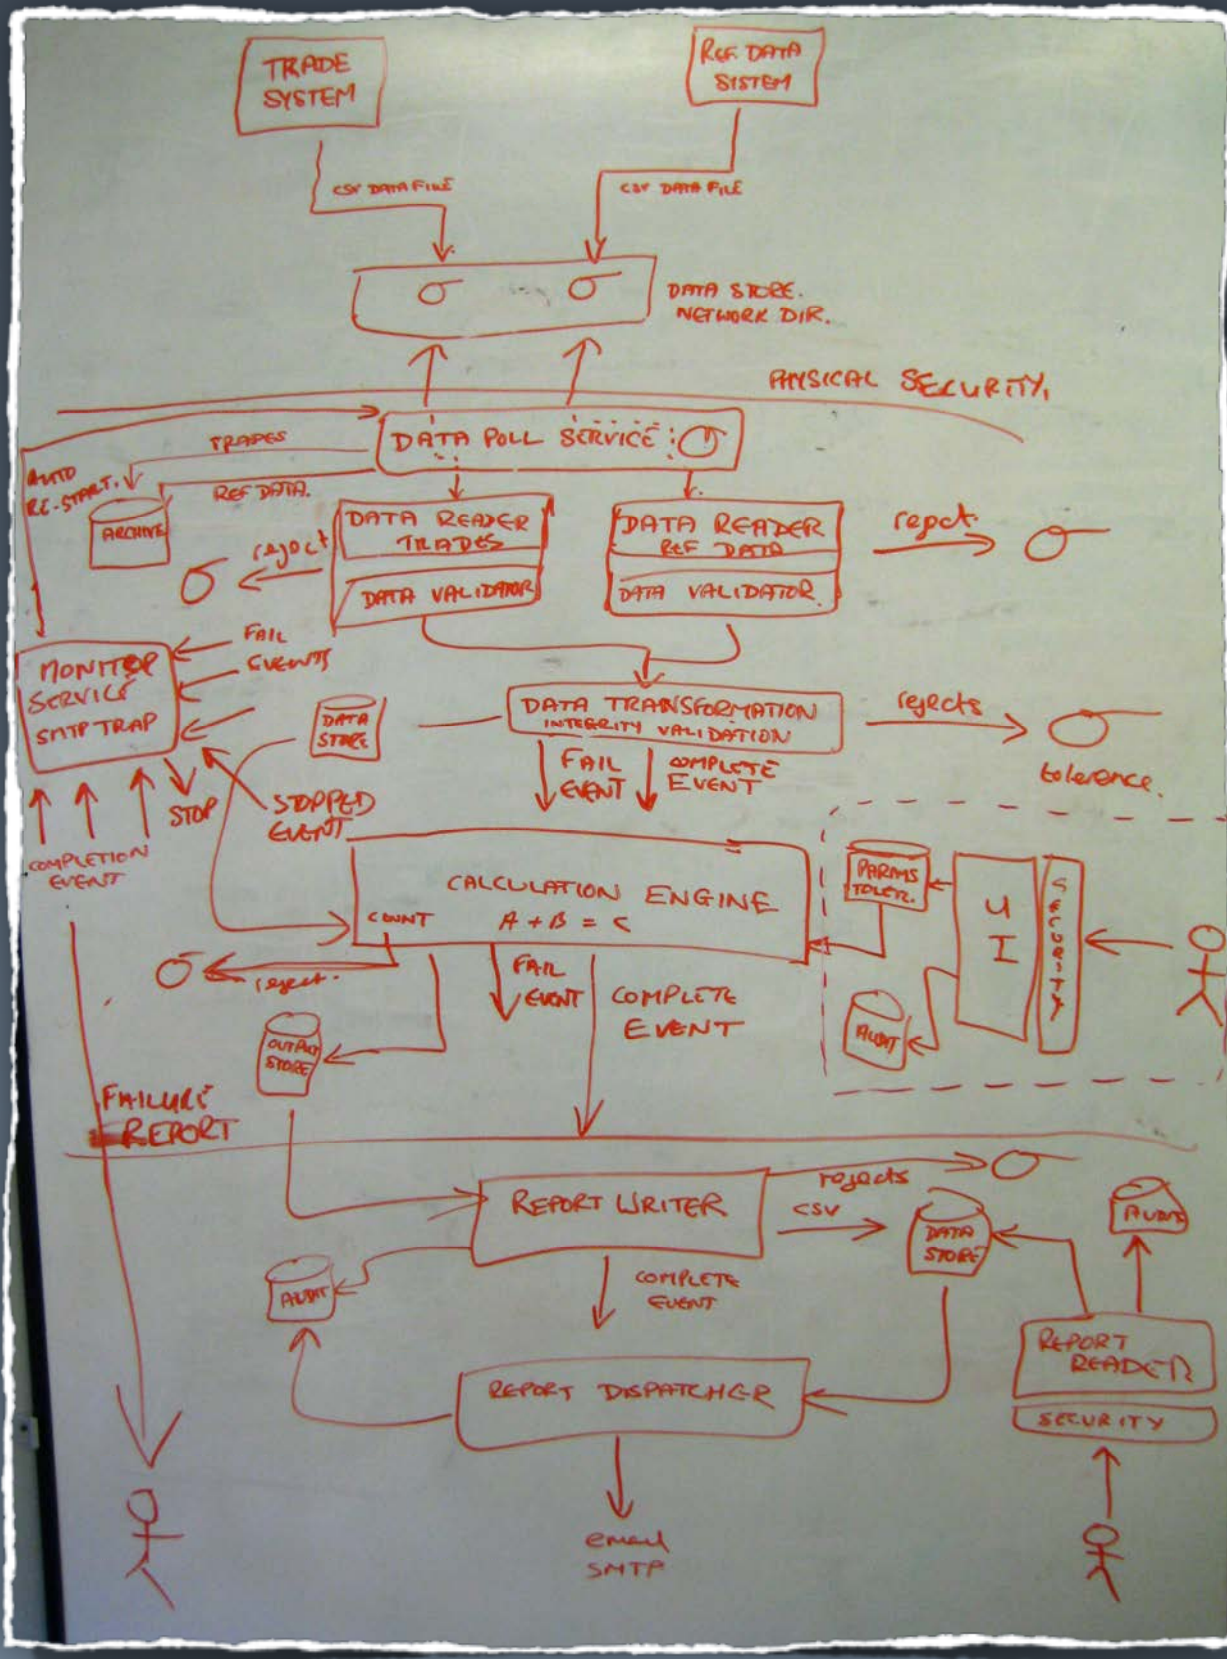 TRADE
SYSTEM
REF DATA
SYSTEM
CSV DATA FILE
CSV DATA FILE
DATA STORE.
NETWORK DIR.
PHYSICAL SECURITY.
DATA POLL SERVICE
TRADES
AUTO
RE-START.
REF DATA.
ARCHIVE
DATA READER
TRADES
DATA VALIDATOR
DATA READER
REF DATA
DATA VALIDATOR.
reject
reject.
FAIL
EVENTS
MONITOR
SERVICE
SMTP TRAP
DATA
STORE
DATA TRANSFORMATION
INTEGRITY VALIDATION
rejects
tolerence.
FAIL
EVENT
COMPLETE
EVENT
STOP
STOPPED
EVENT
COMPLETION
EVENT
CALCULATION ENGINE
A + B = C
COUNT
PARAMS
TOLER.
UI
SECURITY
AUDIT
reject.
FAIL
EVENT
COMPLETE
EVENT
OUTPUT
STORE
FAILURE
REPORT
REPORT WRITER
rejects
CSV
DATA
STORE
AUDIT
AUDIT
COMPLETE
EVENT
REPORT DISPATCHER
REPORT
READER
SECURITY
email
SMTP